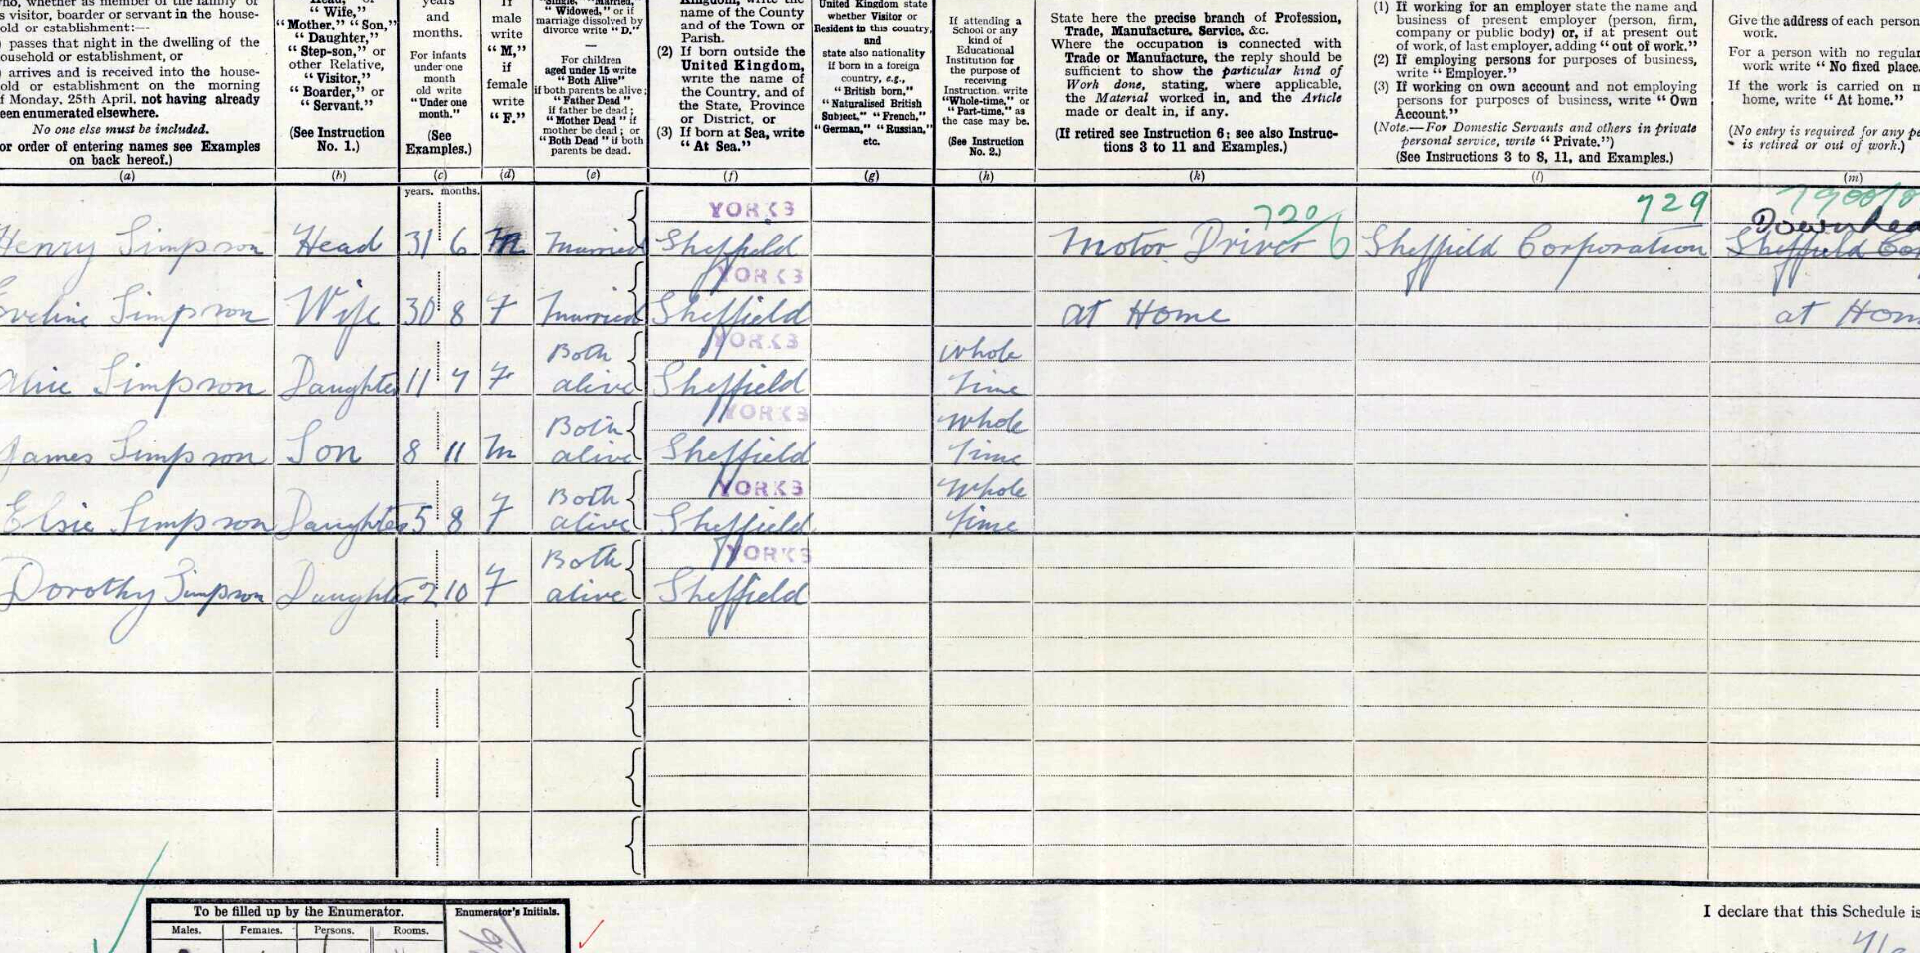 who, whether as member of the family or
as visitor, boarder or servant in the house-
hold or establishment:—
) passes that night in the dwelling of the
household or establishment, or
) arrives and is received into the house-
hold or establishment on the morning
of Monday, 25th April, not having already
been enumerated elsewhere.
No one else must be included.
For order of entering names see Examples
on back hereof.)
(a)
"Wife,"
"Mother," "Son,"
"Daughter,"
"Step-son," or
other Relative,
"Visitor,"
"Boarder," or
"Servant."
(See Instruction
No. 1.)
(b)
years
and
months.
For infants
under one
month
old write
"Under one
month."
(See
Examples.)
(c)
If
male
write
"M,"
if
female
write
"F."
(d)
"Single," "Married,"
"Widowed," or if
marriage dissolved by
divorce write "D."
—
For children
aged under 15 write
"Both Alive"
if both parents be alive;
"Father Dead"
if father be dead;
"Mother Dead" if
mother be dead; or
"Both Dead" if both
parents be dead.
(e)
Kingdom, write the
name of the County
and of the Town or
Parish.
(2) If born outside the
United Kingdom,
write the name of
the Country, and of
the State, Province
or District, or
(3) If born at Sea, write
"At Sea."
(f)
United Kingdom state
whether Visitor or
Resident in this country,
and
state also nationality
if born in a foreign
country, e.g.,
"British born,"
"Naturalised British
Subject," "French,"
"German," "Russian,"
etc.
(g)
If attending a
School or any
kind of
Educational
Institution for
the purpose of
receiving
Instruction, write
"Whole-time," or
"Part-time," as
the case may be.
(See Instruction
No. 2.)
(h)
State here the precise branch of Profession,
Trade, Manufacture, Service, &c.
Where the occupation is connected with
Trade or Manufacture, the reply should be
sufficient to show the particular kind of
Work done, stating, where applicable,
the Material worked in, and the Article
made or dealt in, if any.
(If retired see Instruction 6; see also Instruc-
tions 3 to 11 and Examples.)
(k)
(1) If working for an employer state the name and
business of present employer (person, firm,
company or public body) or, if at present out
of work, of last employer, adding "out of work."
(2) If employing persons for purposes of business,
write "Employer."
(3) If working on own account and not employing
persons for purposes of business, write "Own
Account."
(Note.—For Domestic Servants and others in private
personal service, write "Private.")
(See Instructions 3 to 8, 11, and Examples.)
(l)
Give the address of each person
work.
For a person with no regular
work write "No fixed place.
If the work is carried on
home, write "At home."
(No entry is required for any
is retired or out of work.)
(m)
years. months.
YORKS 720/6 729
Henry Simpson Head 31 6 M Married Sheffield Motor Driver Sheffield Corporation Sheffield
YORKS
Eveline Simpson Wife 30 8 F Married Sheffield at Home at Hom
YORKS
Both whole
Alice Simpson Daughter 11 7 F alive Sheffield time
YORKS
Both whole
James Simpson Son 8 11 M alive Sheffield time
YORKS
Both Whole
Elsie Simpson Daughter 5 8 F alive Sheffield time
YORKS
Both
Dorothy Simpson Daughter 2 10 F alive Sheffield
To be filled up by the Enumerator. Enumerator's Initials.
Males. Females. Persons. Rooms.
I declare that this Schedule is